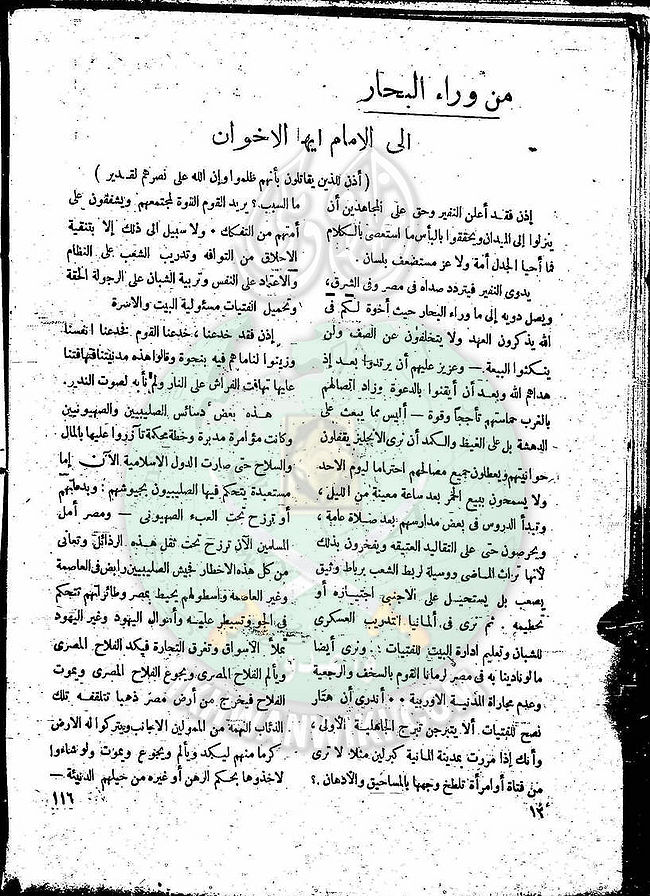 من وراء البحار
الى الامام ايها الاخوان
( أذن للذين يقاتلون بأنهم ظلموا وإن الله على نصرهم لقدير )
إذن فقد أعلن النفير وحق على المجاهدين أن
ينزلوا إلى الميدان ويحققوا بالبأس ما استعصى بالكلام
فما أحيا الجدل أمة ولا عز مستضعف بلسان .
يدوى النفير فيتردد صداه فى مصر وفى الشرق،
ويصل دويه إلى ما وراء البحار حيث أخوة لكم فى
الله يذكرون العهد ولا يتخلفون عن الصف ولن
ينكثوا البيعة . — وعزيز عليهم أن يرتدوا بعد إذ
هداهم الله وبعد أن أيقنوا بالدعوة وزاد اتصالهم
بالغرب حماستهم تأججا وقوة — أليس مما يبعث على
الدهشة بل على الغيظ والكمد أن نرى الانجليز يقفلون
حوانيتهم ويعطلون جميع مصالحهم احتراما ليوم الاحد
ولا يسمحون ببيع الخمر بعد ساعة معينة من الليل ،
وتبدأ الدروس فى بعض مدارسهم بعد صلاة عامة ،
ويحرصون حتى على التقاليد العتيقه ويفخرون بذلك
لأنها تراث الماضى ووسيلة لربط الشعب برباط وثيق
يصعب بل يستحيل على الاجنبى اجتيازه أو
تحطيمه . ثم ترى فى ألمانيا التدريب العسكرى
للشبان وتعليم ادارة البيت للفتيات . وترى أيضا
ما لو نادينا به فى مصر لرمانا القوم بالسخف والرجعية
وعدم مجاراة المدنية الاوربية . أتدرى أن هتلر
نصح للفتيات ألا يتبرجن تبرج الجاهلية الأولى ،
وأنك إذا مررت بمدينة المانية كبرلين مثلا لا ترى
من فتاة أو امرأة تلطخ وجهها بالمساحيق والأدهان .؟
ما السبب ؟ يريد القوم القوة لمجتمعهم ويشفقون على
أمتهم من التفكك . ولا سبيل الى ذلك إلا بتنقية
الاخلاق من التوافه وتدريب الشعب على النظام
والاعتماد على النفس وتربية الشبان على الرجولة الحقة
وتحميل الفتيات مسئولية البيت والاسرة
إذن فقد خدعنا ، خدعنا القوم . فخدعنا انفسنا
وزينوا لنا ما هم فيه بنجوة وقالوا هذه مدنيتنا فتهافتنا
عليها تهافت الفراش على النار ولم نأبه لصوت النذير .
هذه بعض دسائس الصليبيين والصهيونيين
وكانت مؤامرة مدبرة وخطة محكمة تآزروا عليها بالمال
والسلاح حتى صارت الدول الاسلامية الآن إما
مستعبدة يتحكم فيها الصليبيون بجيوشهم
أو ترزح تحت العبء الصهيونى — ومصر أمل
المسلمين الآن ترزح تحت ثقل هذه الرذائل وتعانى
من كل هذه الاخطار فجيش الصليبيين رابض فى العاصمة
وغير العاصمة وأسطولهم يحيط بمصر وطائراتهم تتحكم
فى الجو وتسيطر عليه وأموال اليهود وغير اليهود
تملأ الأسواق وتغرق التجارة فيكد الفلاح المصرى
ويألم الفلاح المصرى ويجوع الفلاح المصرى ويموت
الفلاح فيخرج من أرض مصر ذهبا تتلقفه تلك
الذئاب النهمة من الممولين الاجانب ويتركوا له الارض
كرما منهم ليكد ويألم ويجوع ويموت ولو شاءوا
لاخذوها بحكم الرهن أو غيره من حيلهم الدنيئة —
١١٦
١٣